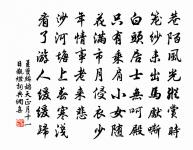 巷陌風光縱賞時
籠紗未出馬先嘶
白頭居士無呵殿
只有乘肩小女隨
花滿市月侵衣
少年情事老來悲
沙河塘上春寒淺
看了游人緩緩歸
姜夔鷓鴣天正月十一
日觀燈詞